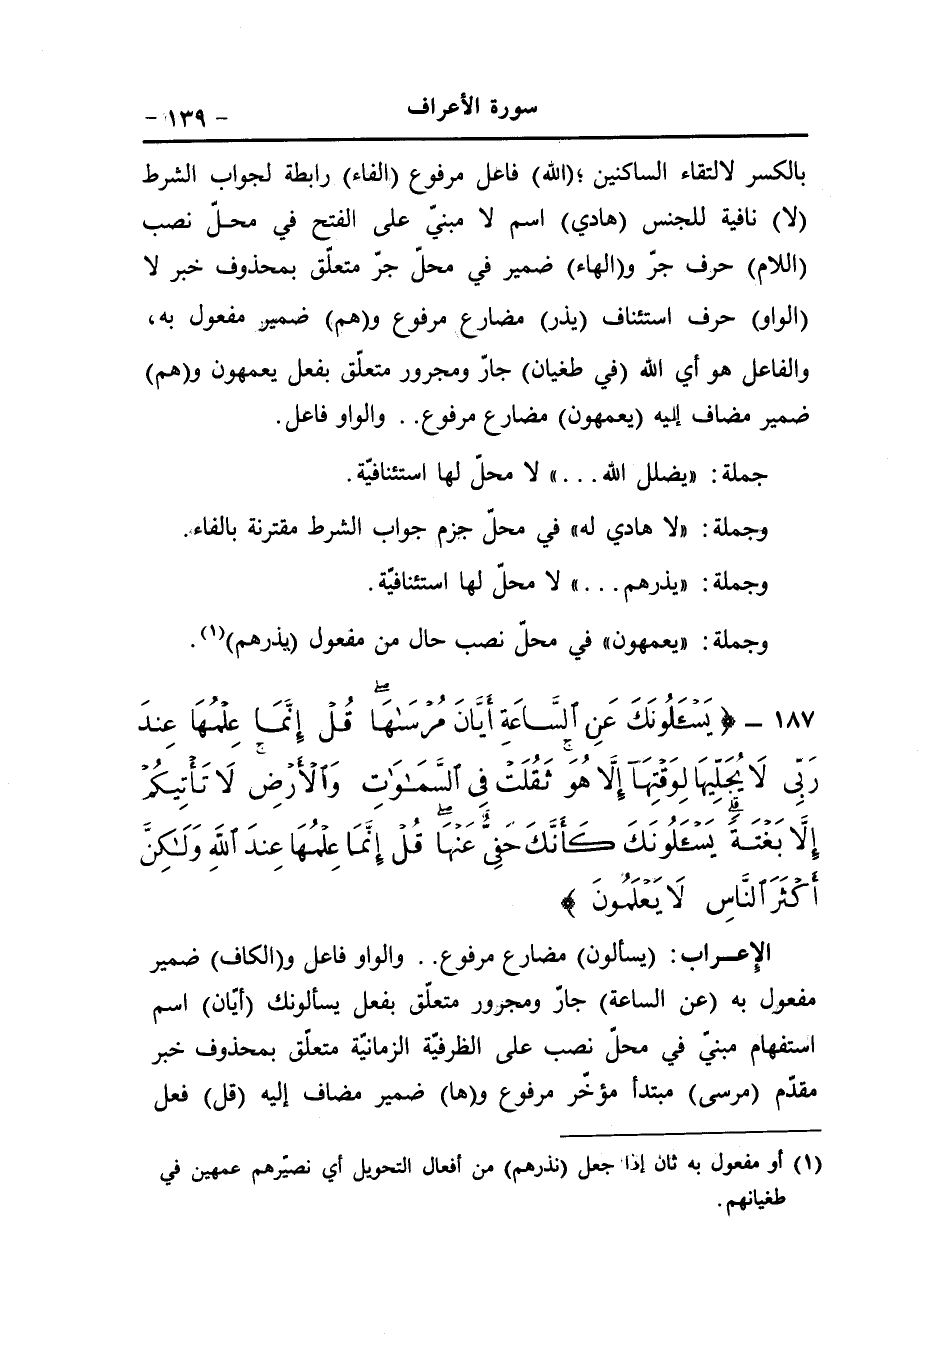 سورة الأعراف
- ١٣٩ -
بالكسر لالتقاء الساكنين ؛(الله) فاعل مرفوع (الفاء) رابطة لجواب الشرط
(لا) نافية للجنس (هادي) اسم لا مبنيّ على الفتح في محلّ نصب
(اللام) حرف جرّ و(الهاء) ضمير في محلّ جرّ متعلّق بمحذوف خبر لا
(الواو) حرف استئناف (يذر) مضارع مرفوع و(هم) ضمير مفعول به،
والفاعل هو أي الله (في طغيان) جارّ ومجرور متعلّق بفعل يعمهون و(هم)
ضمير مضاف إليه (يعمهون) مضارع مرفوع. . والواو فاعل.
جملة: «يضلل الله . . .» لا محلّ لها استئنافيّة.
وجملة: «لا هادي له» في محلّ جزم جواب الشرط مقترنة بالفاء.
وجملة: «يذرهم . . .» لا محلّ لها استئنافيّة.
وجملة: «يعمهون» في محلّ نصب حال من مفعول (يذرهم)(١).
١٨٧ - ﴿ يَسْـَٔلُونَكَ عَنِ ٱلسَّاعَةِ أَيَّانَ مُرْسَىٰهَا ۖ قُلْ إِنَّمَا عِلْمُهَا عِندَ
رَبِّى لَا يُجَلِّيهَا لِوَقْتِهَآ إِلَّا هُوَ ۚ ثَقُلَتْ فِى ٱلسَّمَٰوَٰتِ وَٱلْأَرْضِ ۚ لَا تَأْتِيكُمْ
إِلَّا بَغْتَةً ۗ يَسْـَٔلُونَكَ كَأَنَّكَ حَفِىٌّ عَنْهَا ۖ قُلْ إِنَّمَا عِلْمُهَا عِندَ ٱللَّهِ وَلَٰكِنَّ
أَكْثَرَ ٱلنَّاسِ لَا يَعْلَمُونَ ﴾
الإعــراب: (يسألون) مضارع مرفوع. . والواو فاعل و(الكاف) ضمير
مفعول به (عن الساعة) جارّ ومجرور متعلّق بفعل يسألونك (أيّان) اسم
استفهام مبنيّ في محلّ نصب على الظرفيّة الزمانيّة متعلّق بمحذوف خبر
مقدّم (مرسى) مبتدأ مؤخّر مرفوع و(ها) ضمير مضاف إليه (قل) فعل
(١) أو مفعول به ثان إذا جعل (نذرهم) من أفعال التحويل أي نصيّرهم عمهين في
طغيانهم.